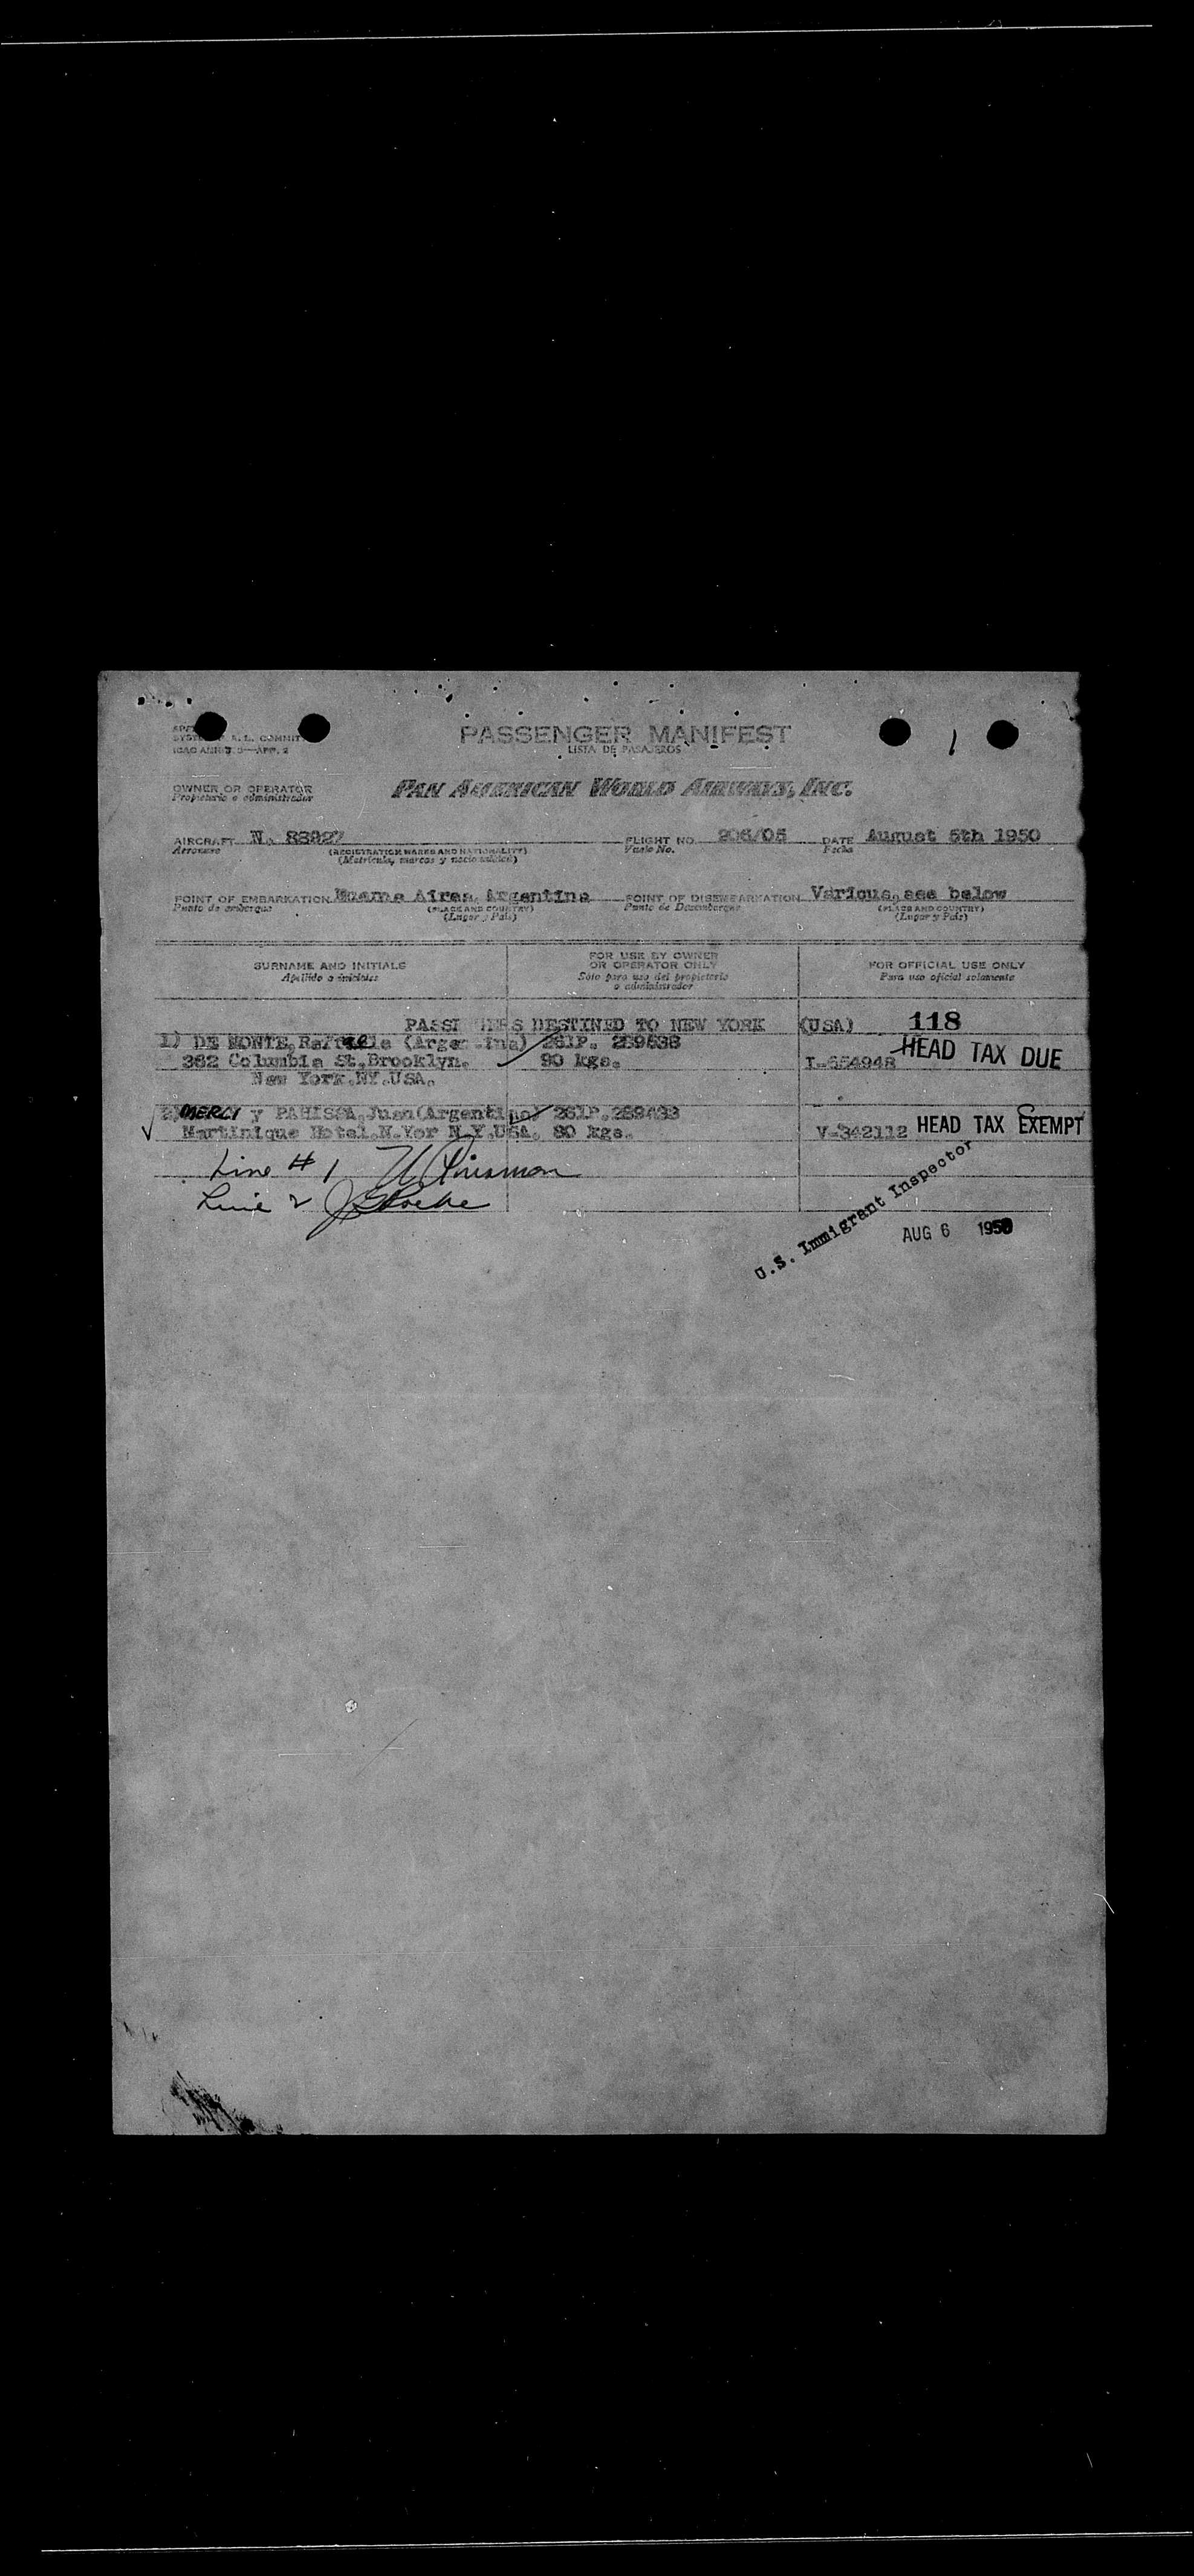 PASSENGER MANIFEST
LISTA DE PASAJEROS
ICAO ANNEX 9—APP. 2
OWNER OR OPERATOR PAN AMERICAN WORLD AIRWAYS, INC.
Propietario o administrador
AIRCRAFT N. 88927 FLIGHT NO. 206/05 DATE August 5th 1950
Aeronave (REGISTRATION MARKS AND NATIONALITY) Vuelo No. Fecha
(Matrícula, marcas y nacionalidad)
POINT OF EMBARKATION Buenos Aires, Argentina POINT OF DISEMBARKATION Various, see below
Punto de embarque (PLACE AND COUNTRY) Punto de Desembarque (PLACE AND COUNTRY)
(Lugar y País) (Lugar y País)
SURNAME AND INITIALS FOR USE BY OWNER OR OPERATOR ONLY FOR OFFICIAL USE ONLY
Apellido e iniciales Sólo para uso del propietario o administrador Para uso oficial solamente
PASSENGERS DESTINED TO NEW YORK (USA) 118
1) DE MONTE, Raffaele (Argentina) 261P. 289538 HEAD TAX DUE
362 Columbia St, Brooklyn. 90 kgs. I-654948
New York. NY. USA.
2) MERLI y PARISSA, Juan (Argentina) 261P. 289433
Martinique Hotel, N. Yor N.Y. USA. 80 kgs. V-342112 HEAD TAX EXEMPT
Line # 1
Line 2
U.S. Immigrant Inspector
AUG 6 1950